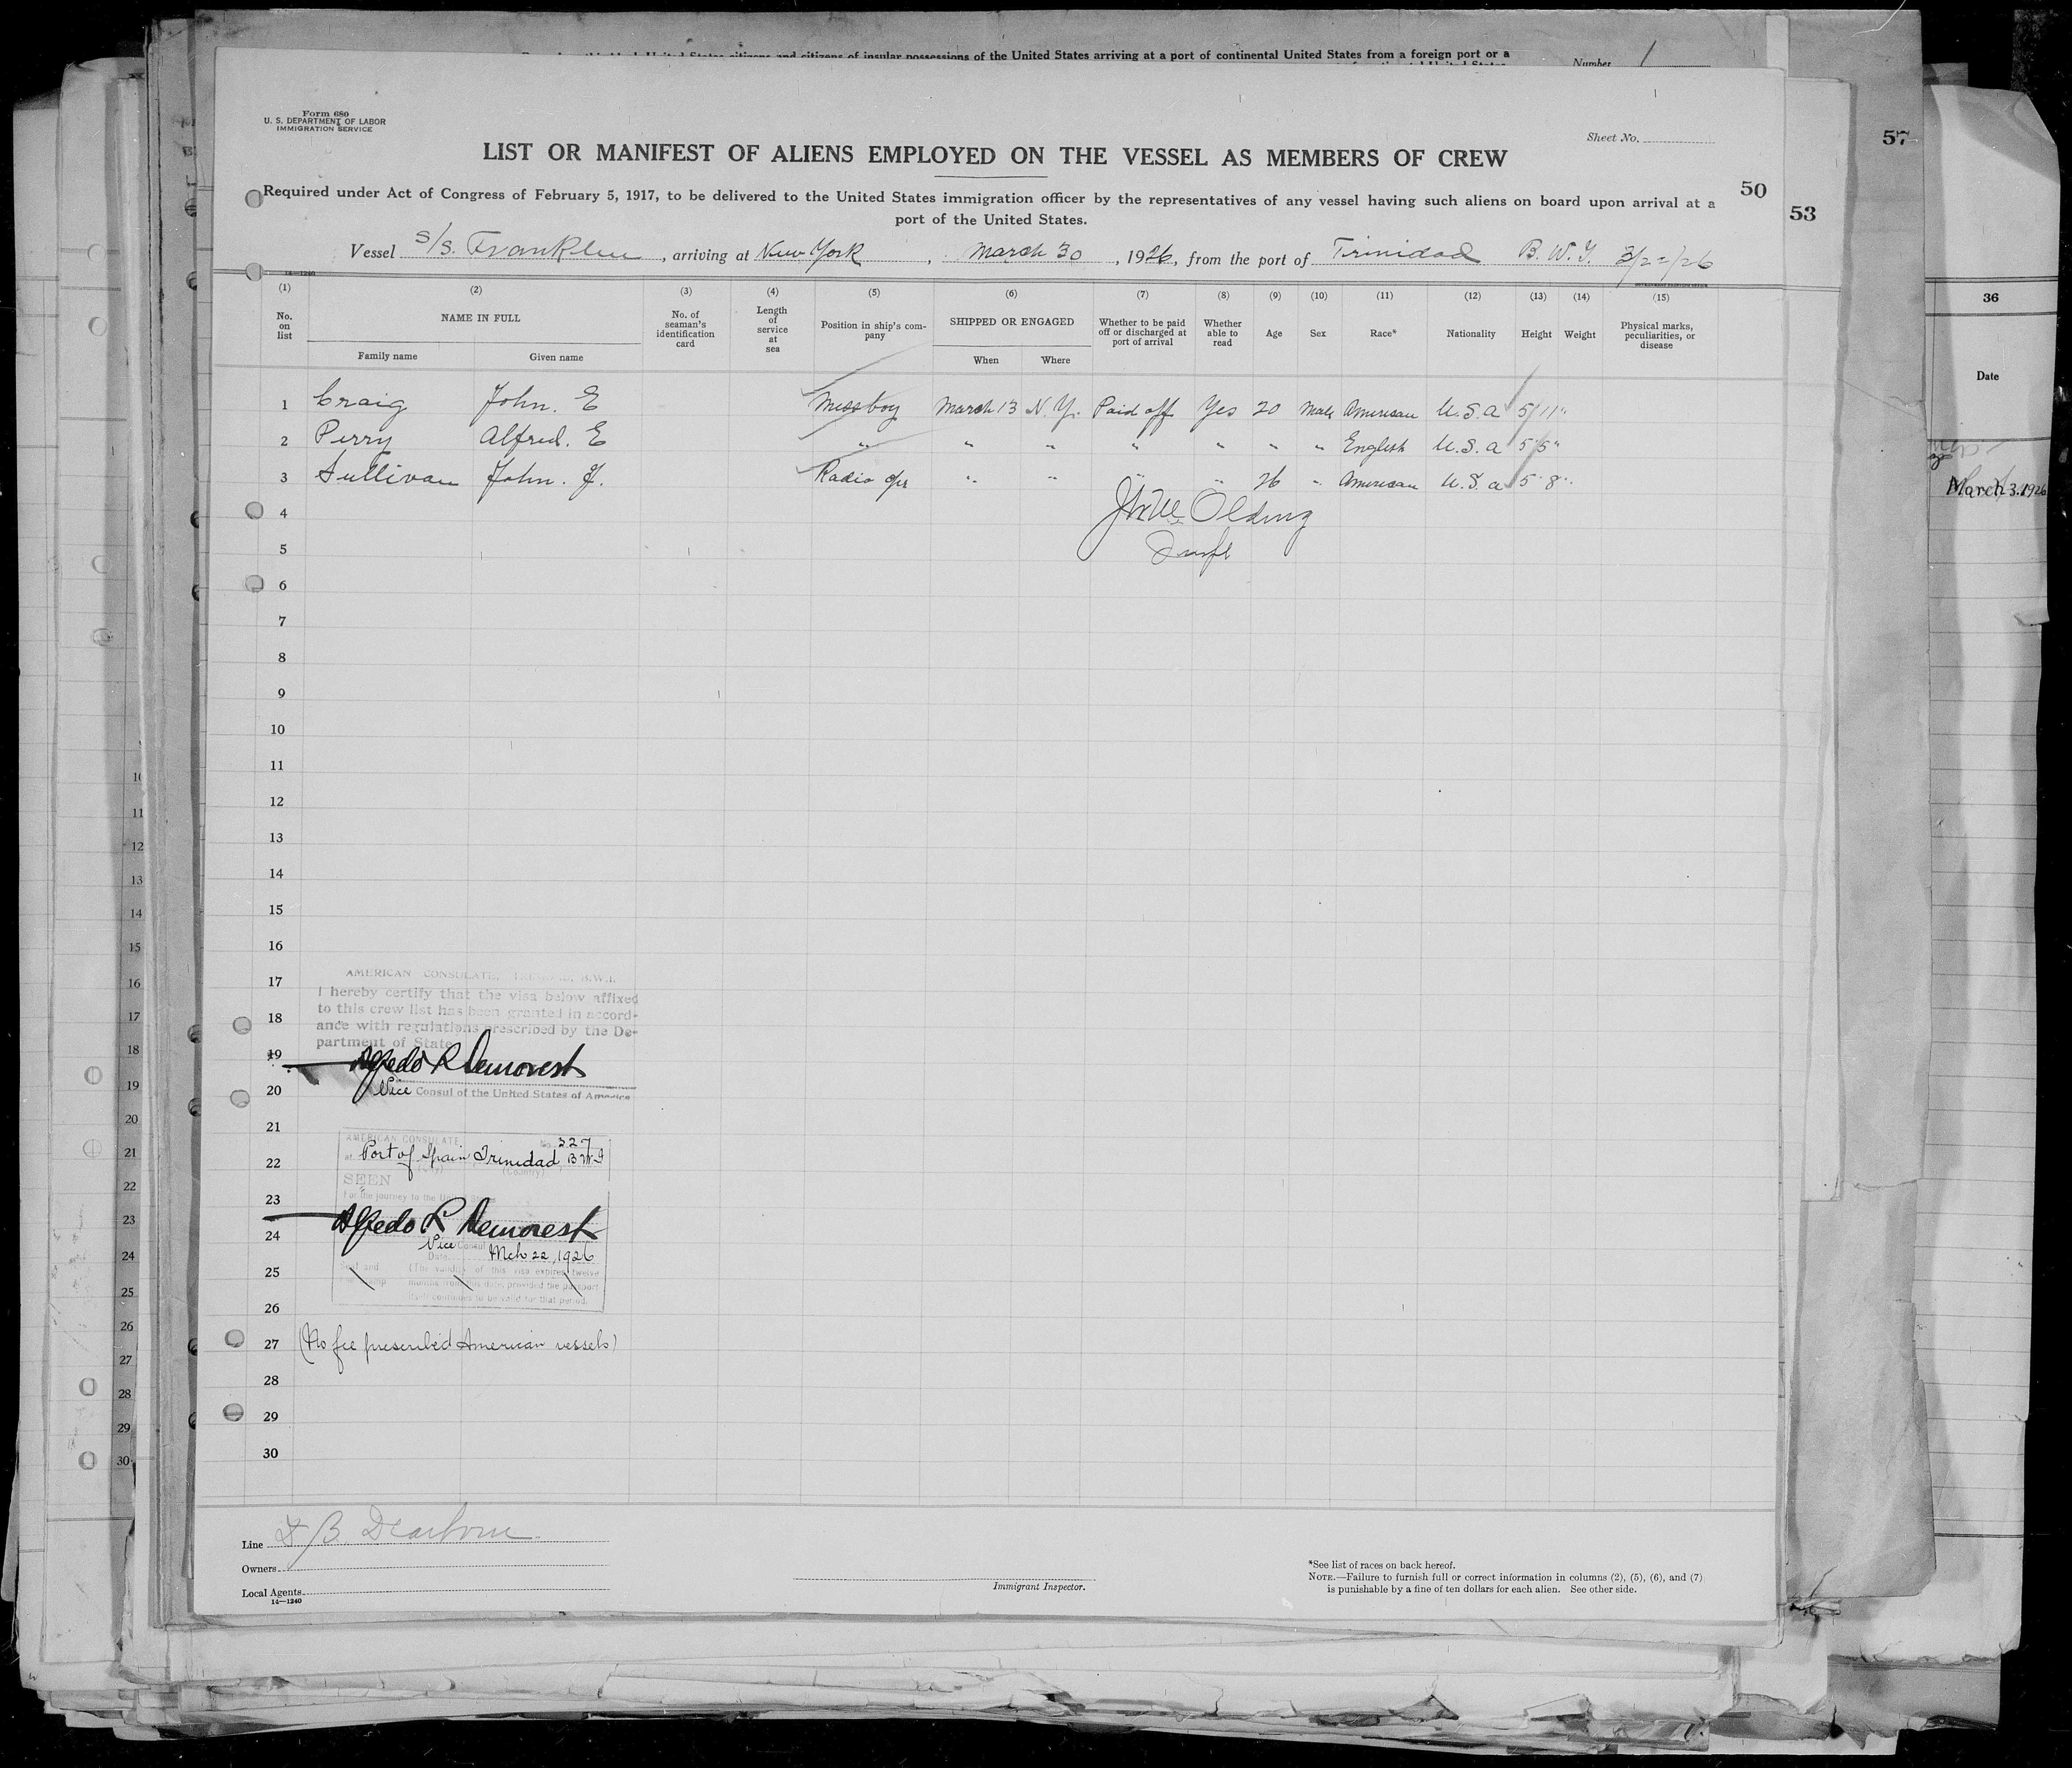 United States citizens and citizens of insular possessions of the United States arriving at a port of continental United States from a foreign port or a
Number 1
Form 680
U. S. DEPARTMENT OF LABOR
IMMIGRATION SERVICE
Sheet No.
57
LIST OR MANIFEST OF ALIENS EMPLOYED ON THE VESSEL AS MEMBERS OF CREW
Required under Act of Congress of February 5, 1917, to be delivered to the United States immigration officer by the representatives of any vessel having such aliens on board upon arrival at a
port of the United States.
50
53
Vessel S/S. Franklin, arriving at New York, March 30, 1926, from the port of Trinidad B. W. I. 3/22/26
14-1240
(1) (2) (3) (4) (5) (6) (7) (8) (9) (10) (11) (12) (13) (14) (15)
No. on list
NAME IN FULL
Family name Given name
No. of seaman's identification card
Length of service at sea
Position in ship's company
SHIPPED OR ENGAGED
When Where
Whether to be paid off or discharged at port of arrival
Whether able to read
Age
Sex
Race*
Nationality
Height
Weight
Physical marks, peculiarities, or disease
36
Date
March 3. 1926
1 Craig John. E Messboy March 13 N. Y. Paid off Yes 20 Male American U. S. a 5/11"
2 Perry Alfred. E " " " " " " " English U. S. a 5'5"
3 Sullivan John. J. Radio opr " " " " 26 " American U. S. a 5' 8"
4 Olding
5
6
7
8
9
10
11
12
13
14
15
16
17
18
19
20
21
22
23
24
25
26
27
28
29
30
AMERICAN CONSULATE, B.W.I.
I hereby certify that the visa below affixed
to this crew list has been granted in accord-
ance with regulations prescribed by the De-
partment of State
Alfredo R Demorest
Vice Consul of the United States of America
AMERICAN CONSULATE No. 327
at Port of Spain Trinidad, B W I
(Country)
SEEN
For the journey to the United States
Alfredo R Demorest
Vice Consul
Date Mch 22, 1926
Seal and stamp
(The validity of this visa expires twelve
months from this date, provided the passport
itself continues to be valid for that period.
(No fee prescribed American vessels)
Line F B. Dearborn
Owners
Local Agents
14—1240
Immigrant Inspector.
*See list of races on back hereof.
NOTE.—Failure to furnish full or correct information in columns (2), (5), (6), and (7)
is punishable by a fine of ten dollars for each alien. See other side.